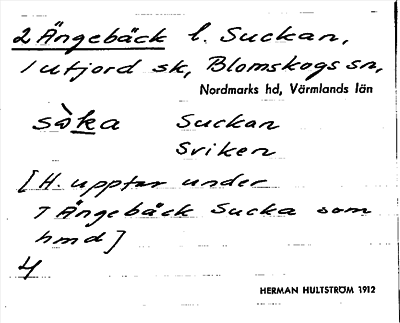 2 Ängebäck l. Suckan,
1 utjord sk, Blomskogs sn,
Nordmarks hd, Värmlands län
sòka Suckan
Sviken
[H. upptar under
7 Ängebäck Sucka som
hmd]
4
HERMAN HULTSTRÖM 1912